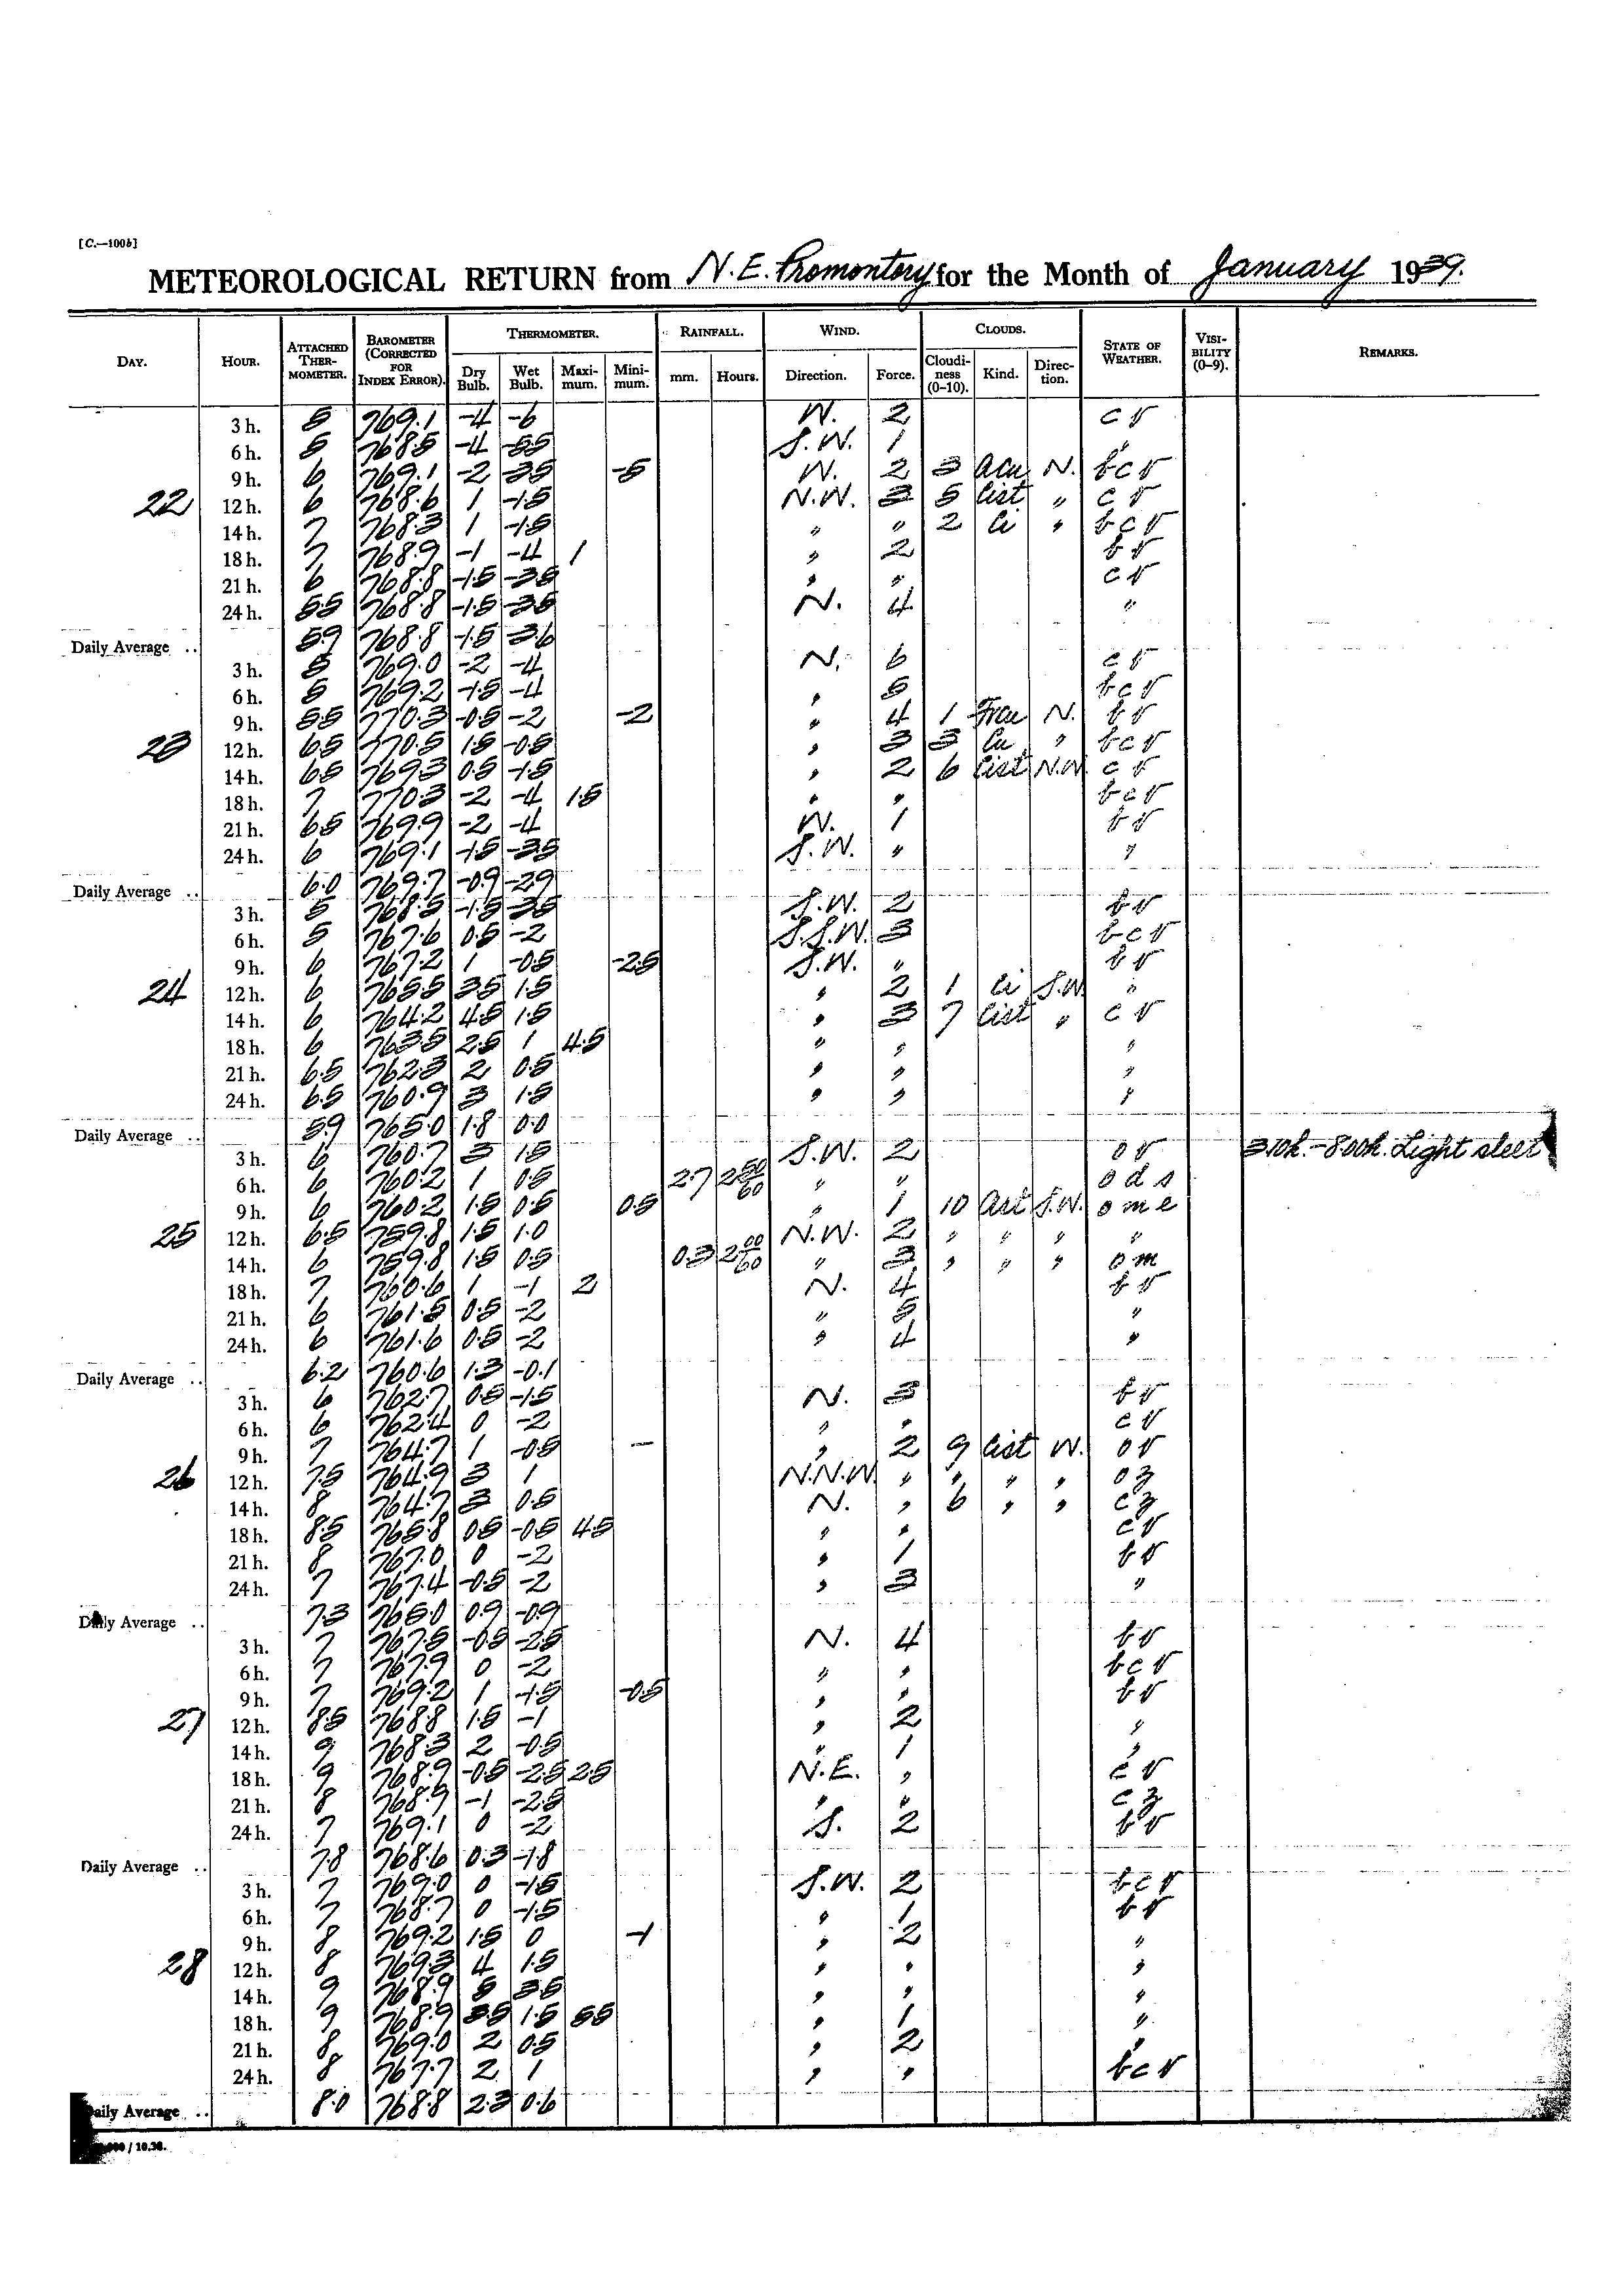 [C.—100b]
METEOROLOGICAL RETURN from N.E. Promontory for the Month of January 1939.
DAY. HOUR. ATTACHED THERMOMETER. BAROMETER (CORRECTED FOR INDEX ERROR). THERMOMETER. RAINFALL. WIND. CLOUDS. STATE OF WEATHER. VISIBILITY (0–9). REMARKS.
Dry Bulb. Wet Bulb. Maximum. Minimum. mm. Hours. Direction. Force. Cloudiness (0–10). Kind. Direction.
3 h. 5 769.1 -4 -6 W. 2 c v
6 h. 5 768.5 -4 -5.5 S.W. 1 "
9 h. 6 769.1 -2 -3.5 -5 W. 2 3 Acu N. b c v
22 12 h. 6 768.6 1 -1.5 N.W. 3 5 Cist " c v
14 h. 7 768.3 1 -1.5 " " 2 Ci " b c v
18 h. 7 768.9 -1 -4 1 " 2 b v
21 h. 6 768.8 -1.5 -3.5 " " c v
24 h. 5.5 768.8 -1.5 -3.5 N. 4 "
Daily Average .. 5.9 768.8 -1.5 -3.6
3 h. 5 769.0 -2 -4 N. 6 c v
6 h. 5 769.2 -1.5 -4 " 5 b c v
9 h. 5.5 770.3 -0.5 -2 -2 " 4 1 Frcu N. b v
23 12 h. 6.5 770.5 1.5 -0.5 " 3 3 Cu " b c v
14 h. 6.5 769.3 0.5 -1.5 " 2 6 Cist N.W. c v
18 h. 7 770.3 -2 -4 1.5 " " b c v
21 h. 6.5 769.9 -2 -4 W. 1 b v
24 h. 6 769.1 -1.5 -3.5 S.W. " "
Daily Average .. 6.0 769.7 -0.9 -2.9
3 h. 5 768.5 -1.5 -3.5 S.W. 2 b v
6 h. 5 767.6 0.5 -2 S.S.W. 3 b c v
9 h. 6 767.2 1 -0.5 -2.5 S.W. " b v
24 12 h. 6 765.5 3.5 1.5 " 2 1 Ci S.W. "
14 h. 6 764.2 4.5 1.5 " 3 7 Cist " c v
18 h. 6 763.5 2.5 1 4.5 " " "
21 h. 6.5 762.3 2 0.5 " " "
24 h. 6.5 760.9 3 1.5 " " "
Daily Average .. 5.9 765.0 1.8 0.0
3 h. 6 760.7 3 1.5 S.W. 2 o v 3.10h.-8.00h. Light sleet
6 h. 6 760.2 1 0.5 2.7 2 50/60 " " o d s
9 h. 6 760.2 1.5 0.5 0.5 " 1 10 Ast S.W. o m e
25 12 h. 6.5 759.8 1.5 1.0 N.W. 2 " " " "
14 h. 6 759.8 1.5 0.5 0.3 2 00/60 " 3 " " " o m
18 h. 7 760.6 1 -1 2 N. 4 b v
21 h. 6 761.5 0.5 -2 " 5 "
24 h. 6 761.6 0.5 -2 " 4 "
Daily Average .. 6.2 760.6 1.3 -0.1
3 h. 6 762.7 0.5 -1.5 N. 3 b v
6 h. 6 762.4 0 -2 " " c v
9 h. 7 764.7 1 -0.5 — " 2 9 Cist W. o v
26 12 h. 7.5 764.9 3 1 N.N.W. " " " " o z
14 h. 8 764.7 3 0.5 N. " 6 " " c z
18 h. 8.5 765.8 0.5 -0.5 4.5 " " c v
21 h. 8 767.0 0 -2 " 1 b v
24 h. 7 767.4 -0.5 -2 " 3 "
Daily Average .. 7.3 765.0 0.9 -0.9
3 h. 7 767.5 -0.5 -2.5 N. 4 b v
6 h. 7 767.9 0 -2 " " b c v
9 h. 7 769.2 1 -1.5 -0.5 " " b v
27 12 h. 8.5 768.8 1.5 -1 " 2 "
14 h. 9 768.3 2 -0.5 " 1 "
18 h. 9 768.9 -0.5 -2.5 2.5 N.E. " c v
21 h. 8 768.9 -1 -2.5 " " c z
24 h. 7 769.1 0 -2 S. 2 b v
Daily Average .. 7.8 768.6 0.3 -1.8
3 h. 7 769.0 0 -1.5 S.W. 2 b c v
6 h. 7 768.7 0 -1.5 " 1 b v
9 h. 8 769.2 1.5 0 -1 " 2 "
28 12 h. 8 769.3 4 1.5 " " "
14 h. 9 768.9 5 3.5 " " "
18 h. 9 768.9 3.5 1.5 5.5 " 1 "
21 h. 8 769.0 2 0.5 " 2 "
24 h. 8 767.7 2 1 " " b c v
Daily Average .. 8.0 768.8 2.3 0.6
/ 10.38.